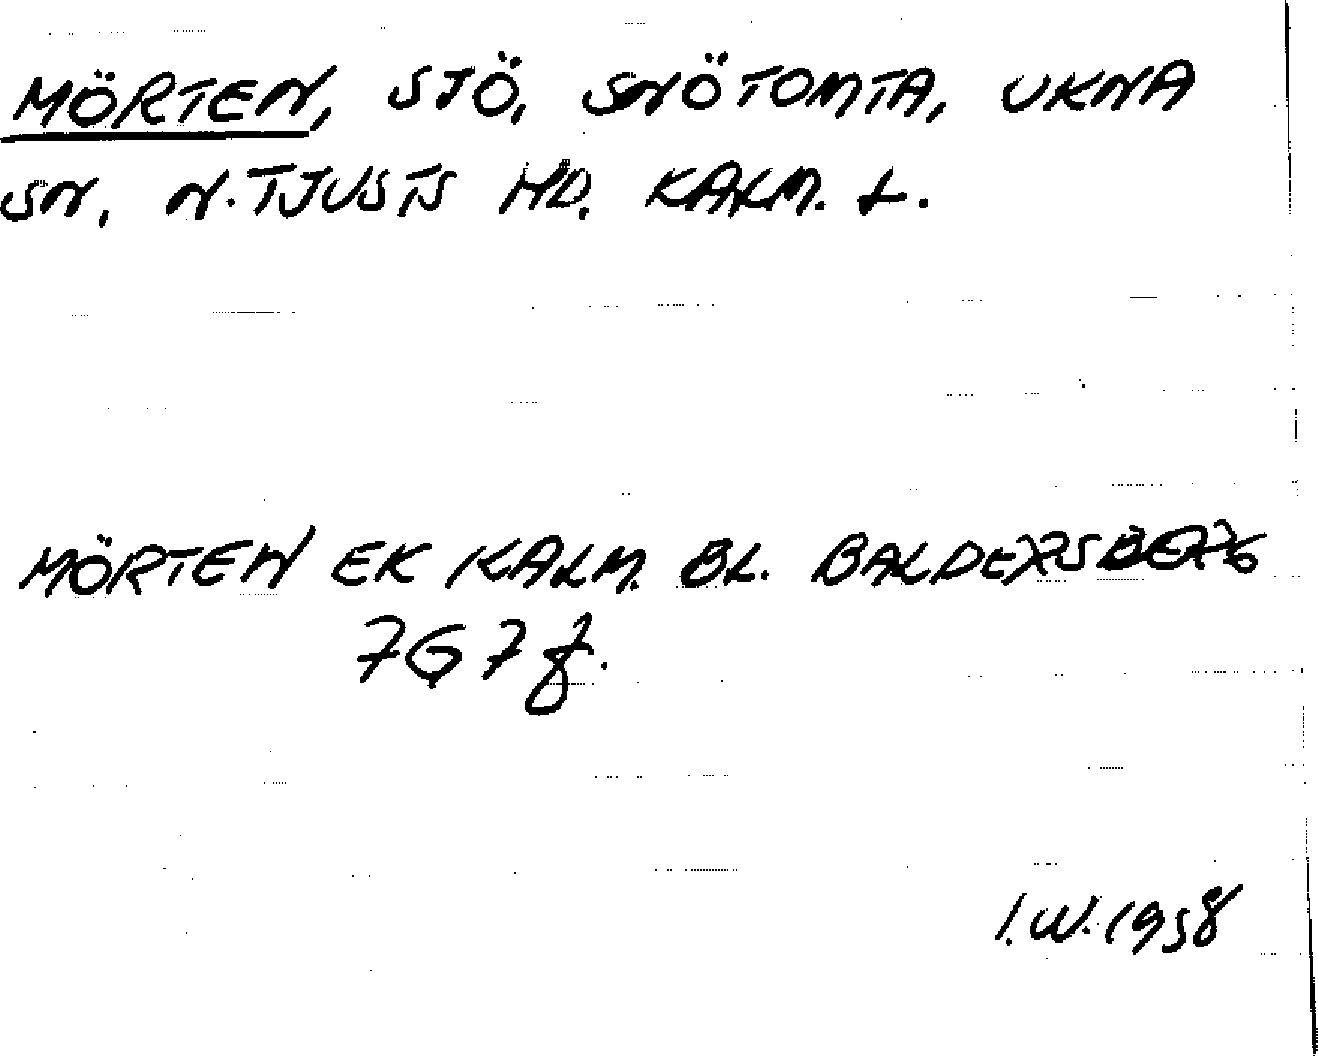 MÖRTEN, SJÖ, SNÖTOMTA, UKNA
SN, N. TJUSTS HD, KALM. L.
MÖRTEN EK KALM. BL. BALDERSBERG
7G7f.
I.W. 1958